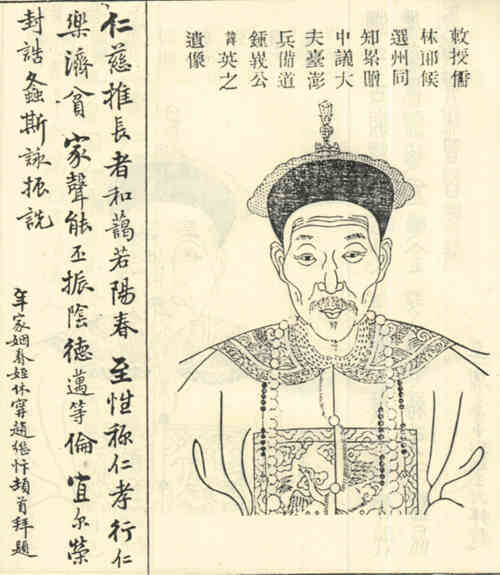 敕授儒
林郎候
選州同
知累贈
中議大
夫臺澎
兵備道
鍾公
諱英之
遺像
仁慈推長者和藹若陽春至性称仁孝行仁
樂濟貧家聲能丕振陰德邁等倫宜尔榮
封誥螽斯詠振詵
年家姻眷姪休寧趙繼忭頓首拜題